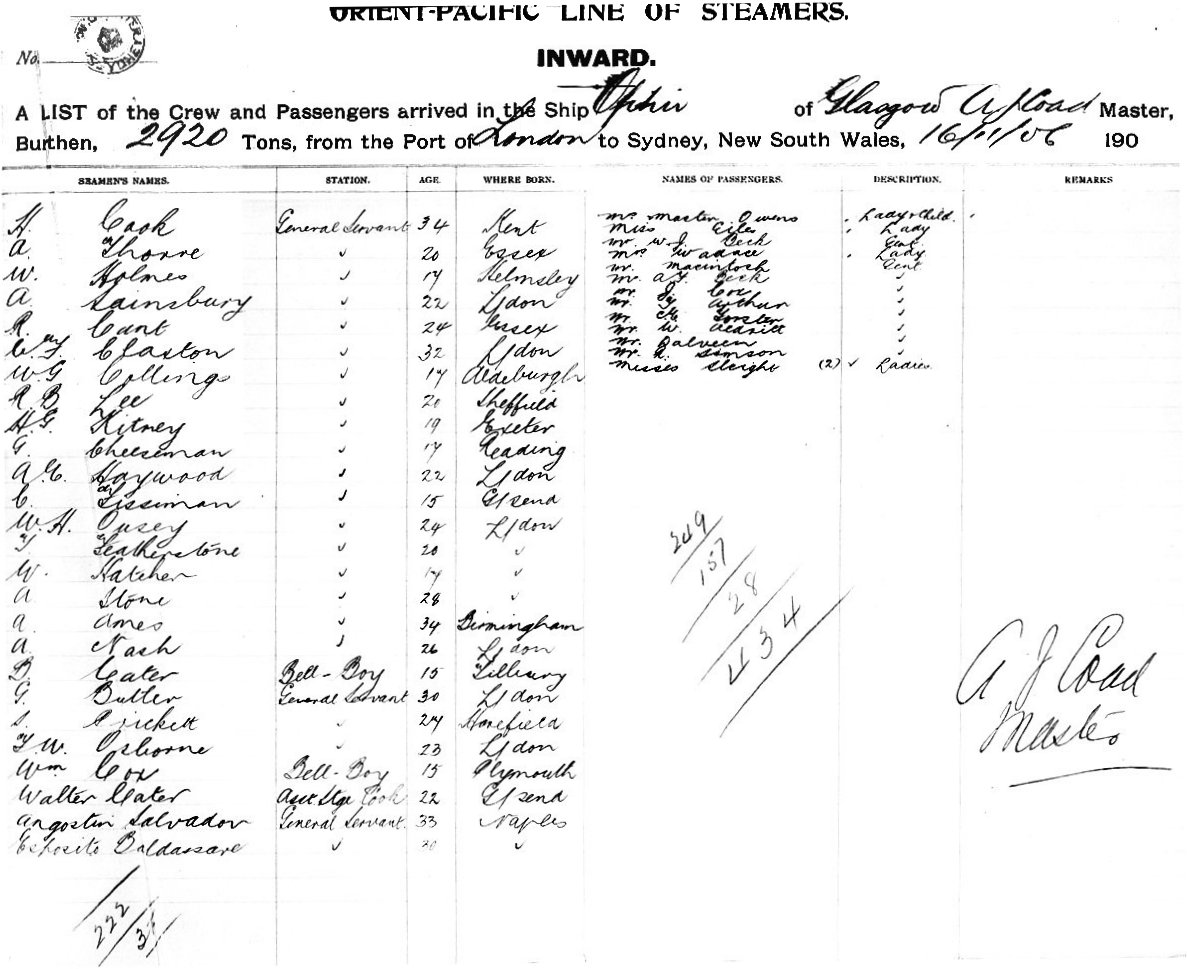 ORIENT-PACIFIC LINE OF STEAMERS.
No.
SYDNEY
INWARD.
A LIST of the Crew and Passengers arrived in the Ship Ophir of Glasgow A J Coad Master,
Burthen, 2920 Tons, from the Port of London to Sydney, New South Wales, 16/11/06 190
SEAMEN'S NAMES. STATION. AGE. WHERE BORN. NAMES OF PASSENGERS. DESCRIPTION. REMARKS
H. Cook General Servant 34 Kent
A. Thorre " 20 Essex
W. Holmes " 17 Helmsley
A. Sainsbury " 22 L/don
R. Cant " 24 Essex
Claxton " 32 L/don
W.G Collings " 17 Aldeburgh
R B Lee " 20 Sheffield
H.G. Kitney " 19 Exeter
G. Cheeseman " 17 Reading
A.E. Haywood " 22 L/don
C. Lissiman " 15 G/send
W.H. Casey " 24 L/don
Featherstone " 20 "
W. Hatcher " 17 "
A Stone " 28 "
A. Ames " 34 Birmingham
A. Nash " 26 L/don
B. Cater Bell-Boy 15 Tilbury
G. Butler General Servant 30 L/don
S. Prickett " 27 Harefield
F.W. Osborne " 23 L/don
Wm Cox Bell-Boy 15 Plymouth
Walter Cater Asst Stge Cook 22 G/send
Angostin Salvador General Servant. 33 Naples
Esposito Baldassare " 30 "
222/38
Mrs Master Owens Lady & Child.
Miss Eiles " Lady
Mr W.J. Beck Gent
Mrs Wallace " Lady
Mr. Macintosh Gent
Mr. A.J. Beck "
Mr. J. Cox "
Mr. Arthur "
Mr. Forster "
Mr. W. "
Mr. Dalveen "
Mr. A. Simson "
Misses Sleight (2) " Ladies.
249
157
28
434
A J Coad
Master